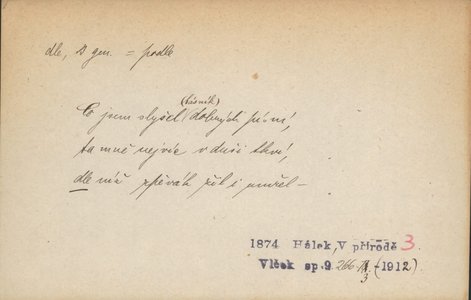 dle, s gen. = podle
(básník)
Co jsem slyšel dobrých písní,
ta mně nejvíc v duši tkví,
dle níž zpěvák žil i umřel –
1874 Hálek, V přírodě 3
Vlček sp. 9 266 (1912)